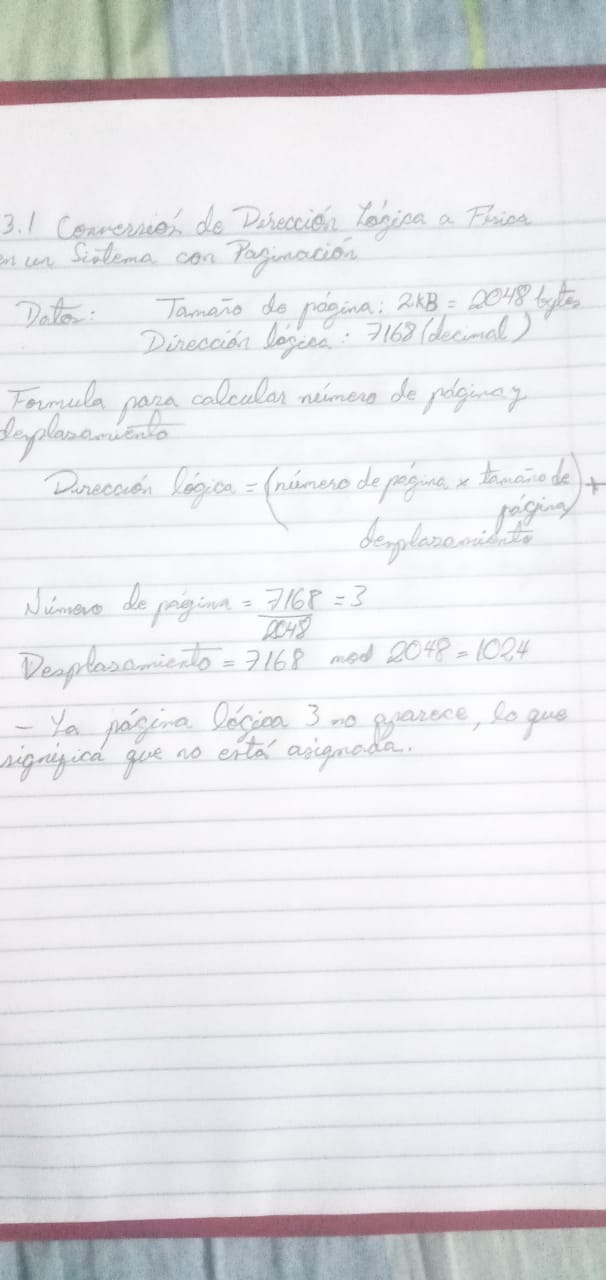 3.1 Conversión de Dirección Lógica a Física
en un Sistema con Paginación
Datos: Tamaño de página: 2KB = 2048 bytes
Dirección lógica: 7168 (decimal)
Formula para calcular número de página y
desplazamiento
Dirección lógica = (número de página x tamaño de página) +
desplazamiento
Número de página = 7168/2048 = 3
Desplasamiento = 7168 mod 2048 = 1024
- La página lógica 3 no aparece, lo que
significa que no está asignada.